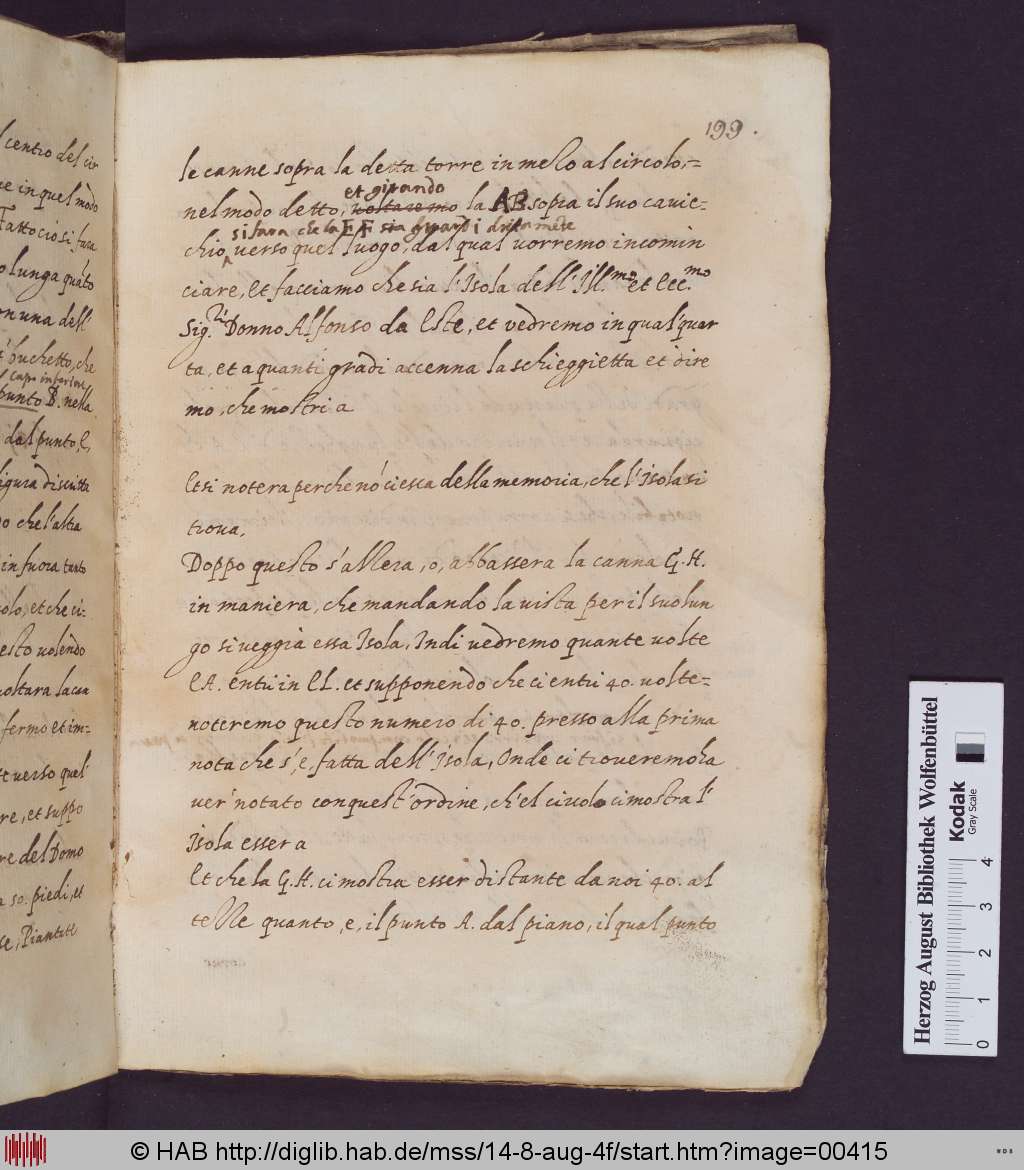 l centro del cir
ue in quel modo
Fatto cio si fara
o lunga quato
on una dell'
t' buchetto, che
capo inferiore
punto B. nella
dal punto, C,
figura discritta
o che l'altra
in fuora tanto
olo, et che ci-
esto volendo
voltara la can
fermo et im-
te verso quel'
re, et suppo
re del Domo
a 50. piedi, et
se, Piantate
199.
le canne sopra la detta torre in mezo al circolo,=
et girando
nel modo detto, voltaremo la AB. sopra il suo cavic-
si fara che la EF sia guardi drittamēte
chio, verso quel luogo, dal qual vorremo incomin
ciare, Et facciamo che sia l'Isola dell'Ill.mo et Ecc.mo
Sig.r Donno Alfonso da Este, et vedremo in qual'quar
ta, et a quanti gradi accenna la schieggietta et dire
mo, che mostri a
Et si notera perche nō ci esca della memoria, che l'Isola si
trova,
Doppo questo s'alzera, o, abbassera la canna G.H.
in maniera, che mandando la vista per il suo lun
go si veggia essa Isola, Indi vedremo quante volte
EA. entri in EL. et supponendo che ci entri 40. volte=
noteremo questo numero di 40. presso alla prima
nota che s'è, fatta dell'Isola, Onde ci troveremo ha
ver' notato con quest'ordine, ch'el circolo ci mostra l'
Isola esser a
Et che la G.H. ci mostra esser distante da noi 40. al
tezze quanto, e, il punto A. dal piano, il qual punto
Herzog August Bibliothek Wolfenbüttel
Kodak
Gray Scale
0 1 2 3 4
© HAB http://diglib.hab.de/mss/14-8-aug-4f/start.htm?image=00415